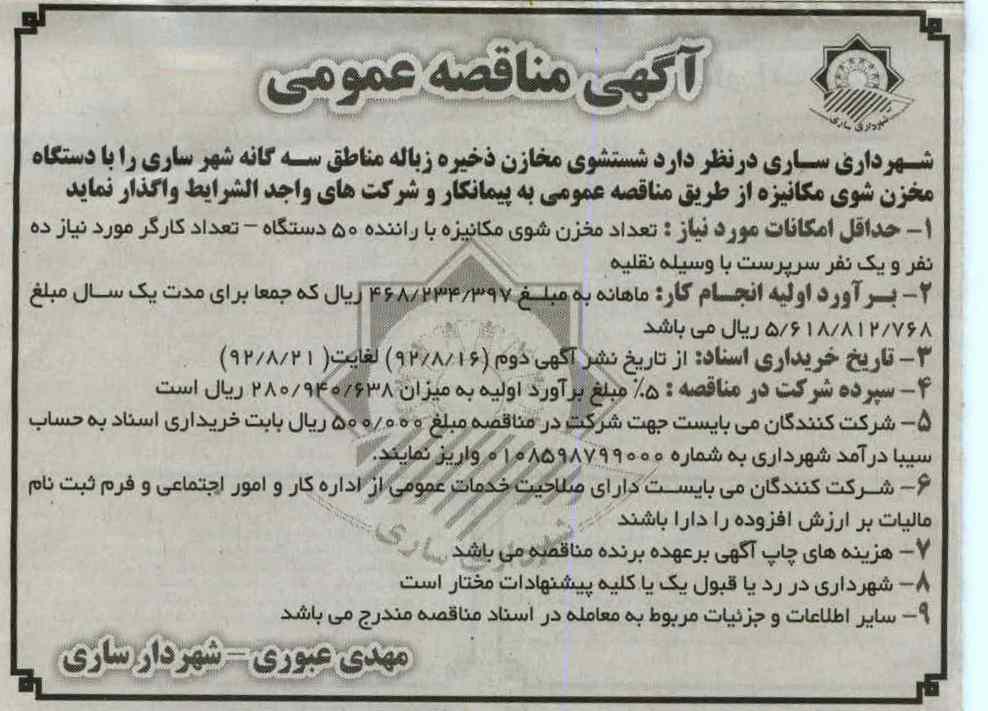 آگهی مناقصه عمومی
شهرداری ساری
شهرداری ساری درنظر دارد شستشوی مخازن ذخیره زباله مناطق سه گانه شهر ساری را با دستگاه
مخزن شوی مکانیزه از طریق مناقصه عمومی به پیمانکار و شرکت های واجد الشرایط واگذار نماید
۱- حداقل امکانات مورد نیاز : تعداد مخزن شوی مکانیزه با راننده ۵۰ دستگاه – تعداد کارگر مورد نیاز ده
نفر و یک نفر سرپرست با وسیله نقلیه
۲- برآورد اولیه انجام کار: ماهانه به مبلغ ۴۶۸/۲۳۴/۳۹۷ ریال که جمعا برای مدت یک سال مبلغ
۵/۶۱۸/۸۱۲/۷۶۸ ریال می باشد
۳- تاریخ خریداری اسناد: از تاریخ نشر آگهی دوم (۹۲/۸/۱۶) لغایت( ۹۲/۸/۲۱)
۴- سپرده شرکت در مناقصه : ۵٪ مبلغ برآورد اولیه به میزان ۲۸۰/۹۴۰/۶۳۸ ریال است
۵- شرکت کنندگان می بایست جهت شرکت در مناقصه مبلغ ۵۰۰/۰۰۰ ریال بابت خریداری اسناد به حساب
سیبا درآمد شهرداری به شماره ۰۱۰۸۵۹۸۷۹۹۰۰۰ واریز نمایند.
۶- شرکت کنندگان می بایست دارای صلاحیت خدمات عمومی از اداره کار و امور اجتماعی و فرم ثبت نام
مالیات بر ارزش افزوده را دارا باشند
۷- هزینه های چاپ آگهی برعهده برنده مناقصه می باشد
۸- شهرداری در رد یا قبول یک یا کلیه پیشنهادات مختار است
۹- سایر اطلاعات و جزئیات مربوط به معامله در اسناد مناقصه مندرج می باشد
شهرداری ساری
مهدی عبوری – شهردار ساری